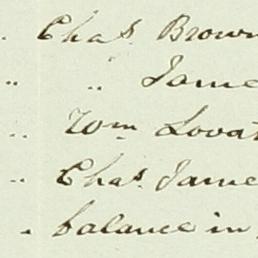 " Chas. Brown
" " Jame
" Wm Lovat
" Chas. Jame
" balance in